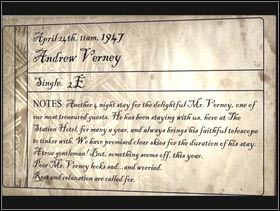 April 24th, 11am. 1947
Andrew Verney
Single. 2E
NOTES: Another 4 night stay for the delightful Mr. Verney, one of
our most treasured guests. He has been staying with us, here at The
Station Hotel, for many a year, and always brings his faithful telescope
to tinker with. We have promised clear skies for the duration of his stay.
A true gentleman! But, something seems off, this year.
Poor Mr. Verney looks sad...and worried.
Rest and relaxation are called for.